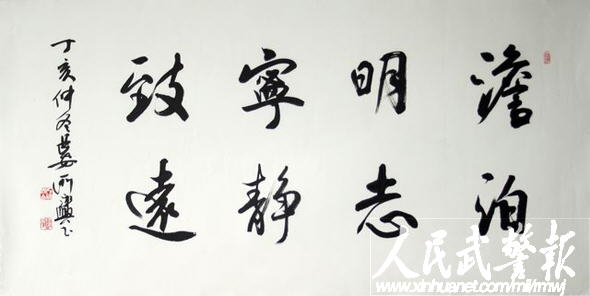 澹泊
明志
寧静
致遠
丁亥仲冬
人民武警報
www.xinhuanet.com/mil/rmwj